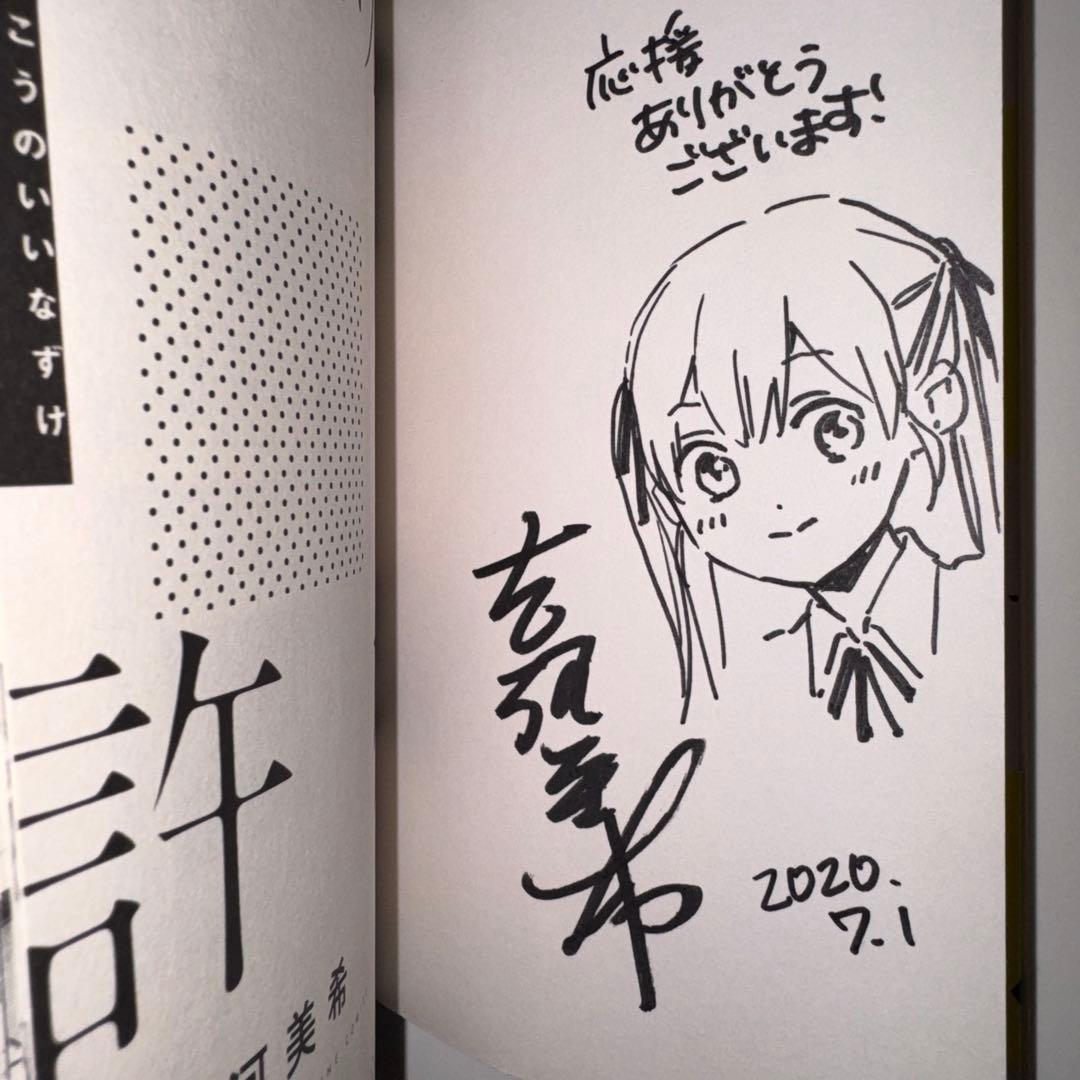 こうのいいなずけ
許
河美希
応援
ありがとう
ございます!
吉河美希
2020.
7.1